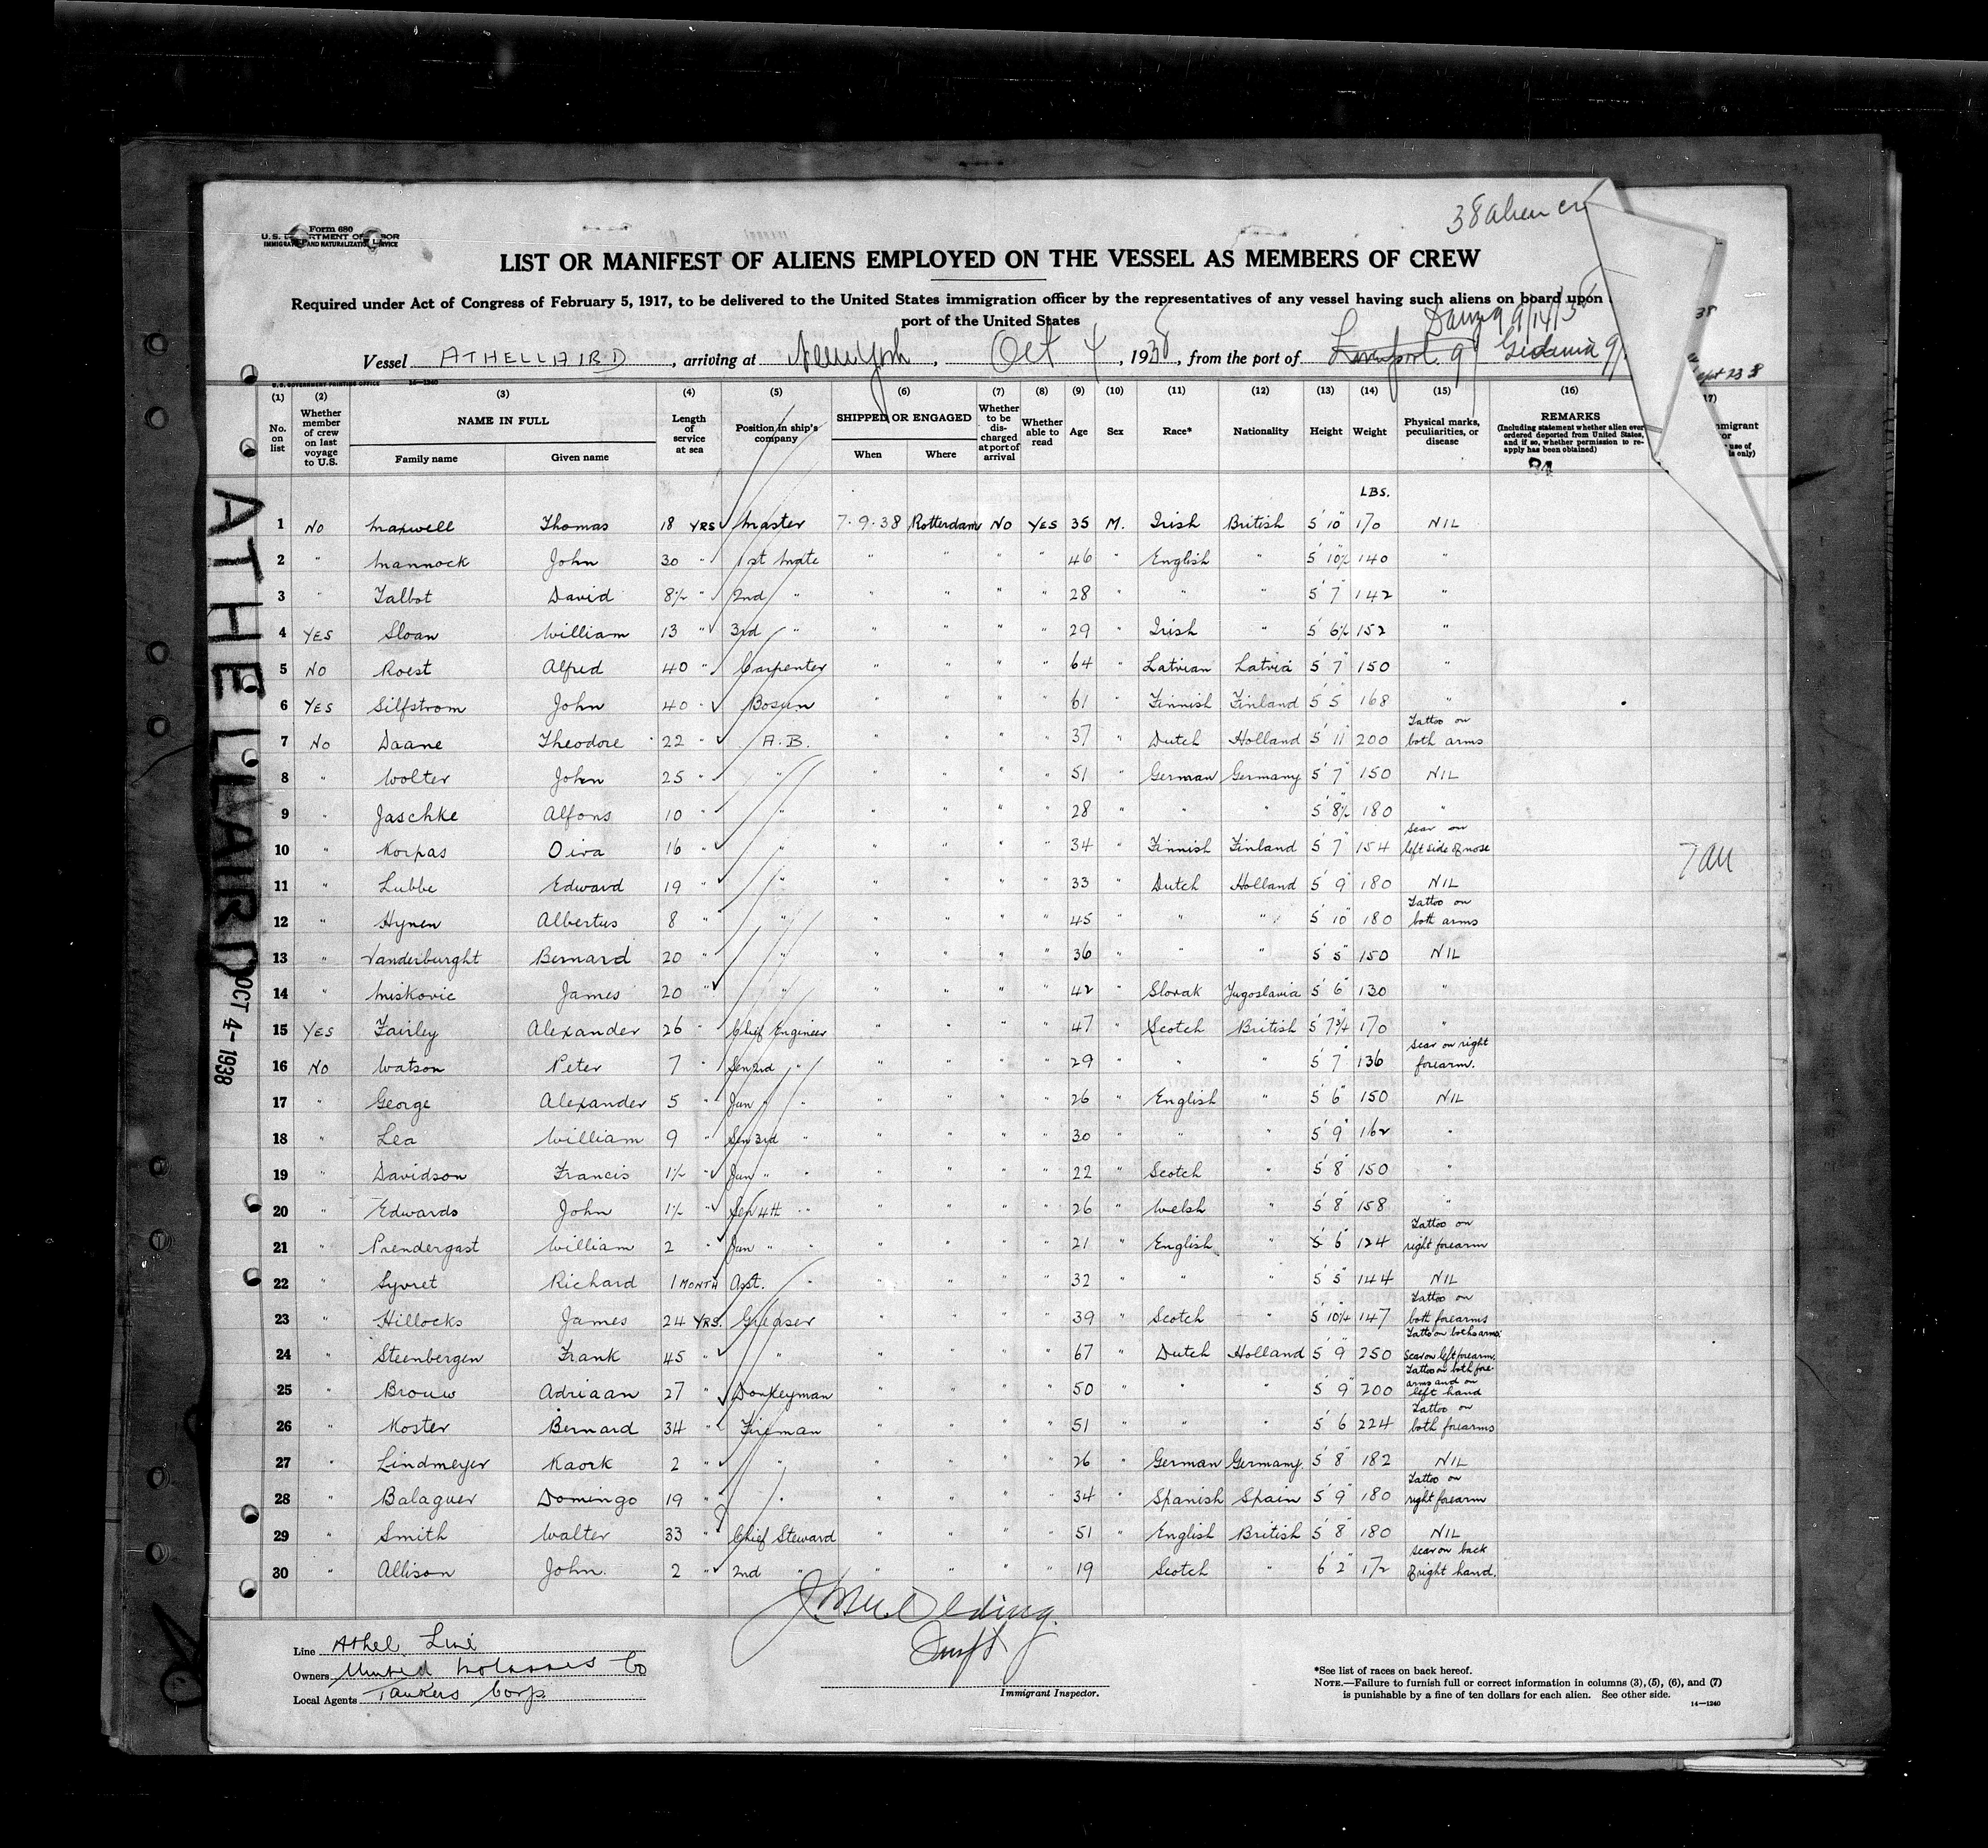 38 alien
Form 680
U.S. DEPARTMENT OF LABOR
IMMIGRATION AND NATURALIZATION SERVICE
LIST OR MANIFEST OF ALIENS EMPLOYED ON THE VESSEL AS MEMBERS OF CREW
Required under Act of Congress of February 5, 1917, to be delivered to the United States immigration officer by the representatives of any vessel having such aliens on board upon
port of the United States
Danzig 9/14/38
Vessel ATHELLAIRD, arriving at New York, Oct 4, 1938, from the port of
U.S. GOVERNMENT PRINTING OFFICE 14—1240
Sept 23 38
(1) No. on list
(2) Whether member of crew on last voyage to U.S.
(3) NAME IN FULL Family name Given name
(4) Length of service at sea
(5) Position in ship's company
(6) SHIPPED OR ENGAGED When Where
(7) Whether to be discharged at port of arrival
(8) Whether able to read
(9) Age
(10) Sex
(11) Race*
(12) Nationality
(13) Height
(14) Weight
(15) Physical marks, peculiarities, or disease
(16) REMARKS (Including statement whether alien ever ordered deported from United States, and if so, whether permission to reapply has been obtained)
LBS.
1 NO Maxwell Thomas 18 YRS Master 7.9.38 Rotterdam NO YES 35 M. Irish British 5' 10" 170 NIL
2 " Mannock John 30 " 1st Mate " " " " 46 " English " 5' 10½ 140 "
3 " Talbot David 8½ " 2nd " " " " " 28 " " " 5' 7" 142 "
4 YES Sloan William 13 " 3rd " " " " " 29 " Irish " 5' 6½ 152 "
5 NO Roest Alfred 40 " Carpenter " " " " 64 " Latvian Latvia 5' 7" 150 "
6 YES Silfstrom John 40 " Bosun " " " " 61 " Finnish Finland 5' 5" 168 "
7 NO Daane Theodore 22 " A.B. " " " " 37 " Dutch Holland 5' 11" 200 Tattoo on both arms
8 " Wolter John 25 " " " " " " 51 " German Germany 5' 7" 150 NIL
9 " Jaschke Alfons 10 " " " " " " 28 " " " 5' 8½ 180 "
10 " Korpas Oiva 16 " " " " " " 34 " Finnish Finland 5' 7" 154 Scar on left side of nose
11 " Lubbe Edward 19 " " " " " " 33 " Dutch Holland 5' 9" 180 NIL
12 " Hynen Albertus 8 " " " " " " 45 " " " 5' 10" 180 Tattoo on both arms
13 " Vanderburght Bernard 20 " " " " " " 36 " " " 5' 5" 150 NIL
14 " Miskovic James 20 " " " " " " 42 " Slovak Yugoslavia 5' 6" 130 "
15 YES Fairley Alexander 26 " Chief Engineer " " " " 47 " Scotch British 5' 7¾ 170 "
16 NO Watson Peter 7 " Sen 2nd " " " " " 29 " " " 5' 7" 136 Scar on right forearm.
17 " George Alexander 5 " Jun " " " " " " 26 " English " 5' 6" 150 NIL
18 " Lea William 9 " Sen 3rd " " " " " 30 " " " 5' 9" 162 "
19 " Davidson Francis 1½ " Jun " " " " " " 22 " Scotch " 5' 8" 150 "
20 " Edwards John 1½ " Sen 4th " " " " " 26 " Welsh " 5' 8" 158 "
21 " Prendergast William 2 " Jun " " " " " " 21 " English " 5' 6" 124 Tattoo on right forearm
22 " Syvret Richard 1 MONTH Asst. " " " " " 32 " " " 5' 5" 144 NIL
23 " Hillocks James 24 YRS. Greaser " " " " 39 " Scotch " 5' 10¼ 147 Tattoo on both forearms
24 " Steenbergen Frank 45 " " " " " " 67 " Dutch Holland 5' 9" 250 Tattoo on both arms. Scar on left forearm.
25 " Brouw Adriaan 27 " Donkeyman " " " " 50 " " " 5' 9" 200 Tattoo on both forearms and on left hand
26 " Koster Bernard 34 " Fireman " " " " 51 " " " 5' 6 224 Tattoo on both forearms
27 " Lindmeyer Kaork 2 " " " " " " 26 " German Germany. 5' 8" 182 NIL
28 " Balaguer Domingo 19 " " " " " " 34 " Spanish Spain 5' 9" 180 Tattoo on right forearm
29 " Smith Walter 33 " Chief Steward " " " " 51 " English British 5' 8" 180 NIL
30 " Allison John. 2 " 2nd " " " " " 19 " Scotch " 6' 2" 172 Scar on back of right hand.
ATHELLAIRD
OCT 4-1938
Line Athel Line
Owners United Molasses Co
Local Agents Tankers Corp.
Immigrant Inspector.
*See list of races on back hereof.
NOTE.—Failure to furnish full or correct information in columns (3), (5), (6), and (7)
is punishable by a fine of ten dollars for each alien. See other side.
14—1240